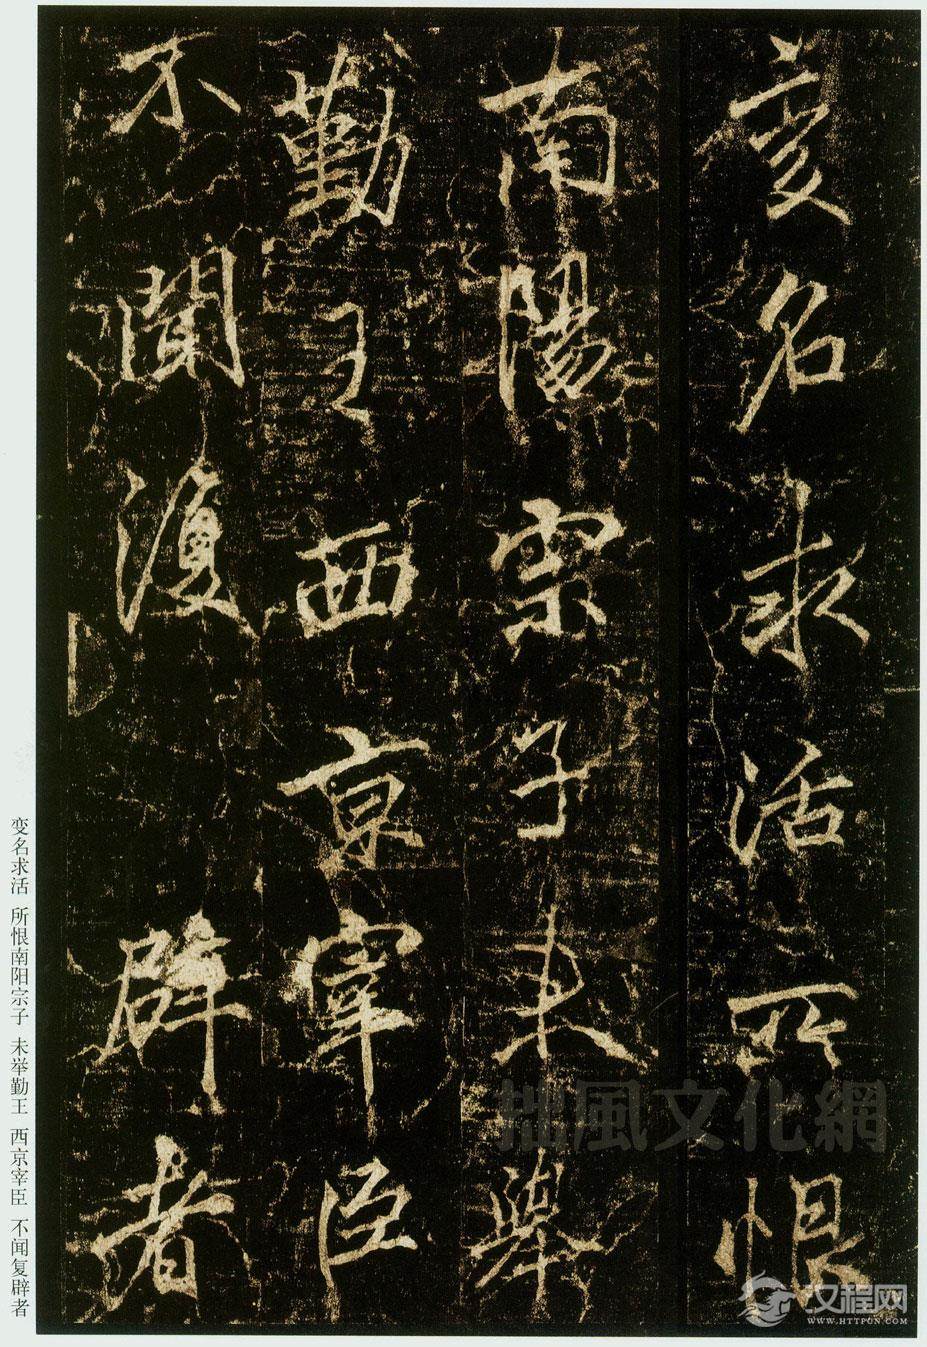 变名求活所恨
南陽宗子未舉
勤王西京宰臣
不聞復辟者
变名求活 所恨南阳宗子 未举勤王 西京宰臣 不闻复辟者
拙風文化網
汉程网
WWW.HTTPCN.COM